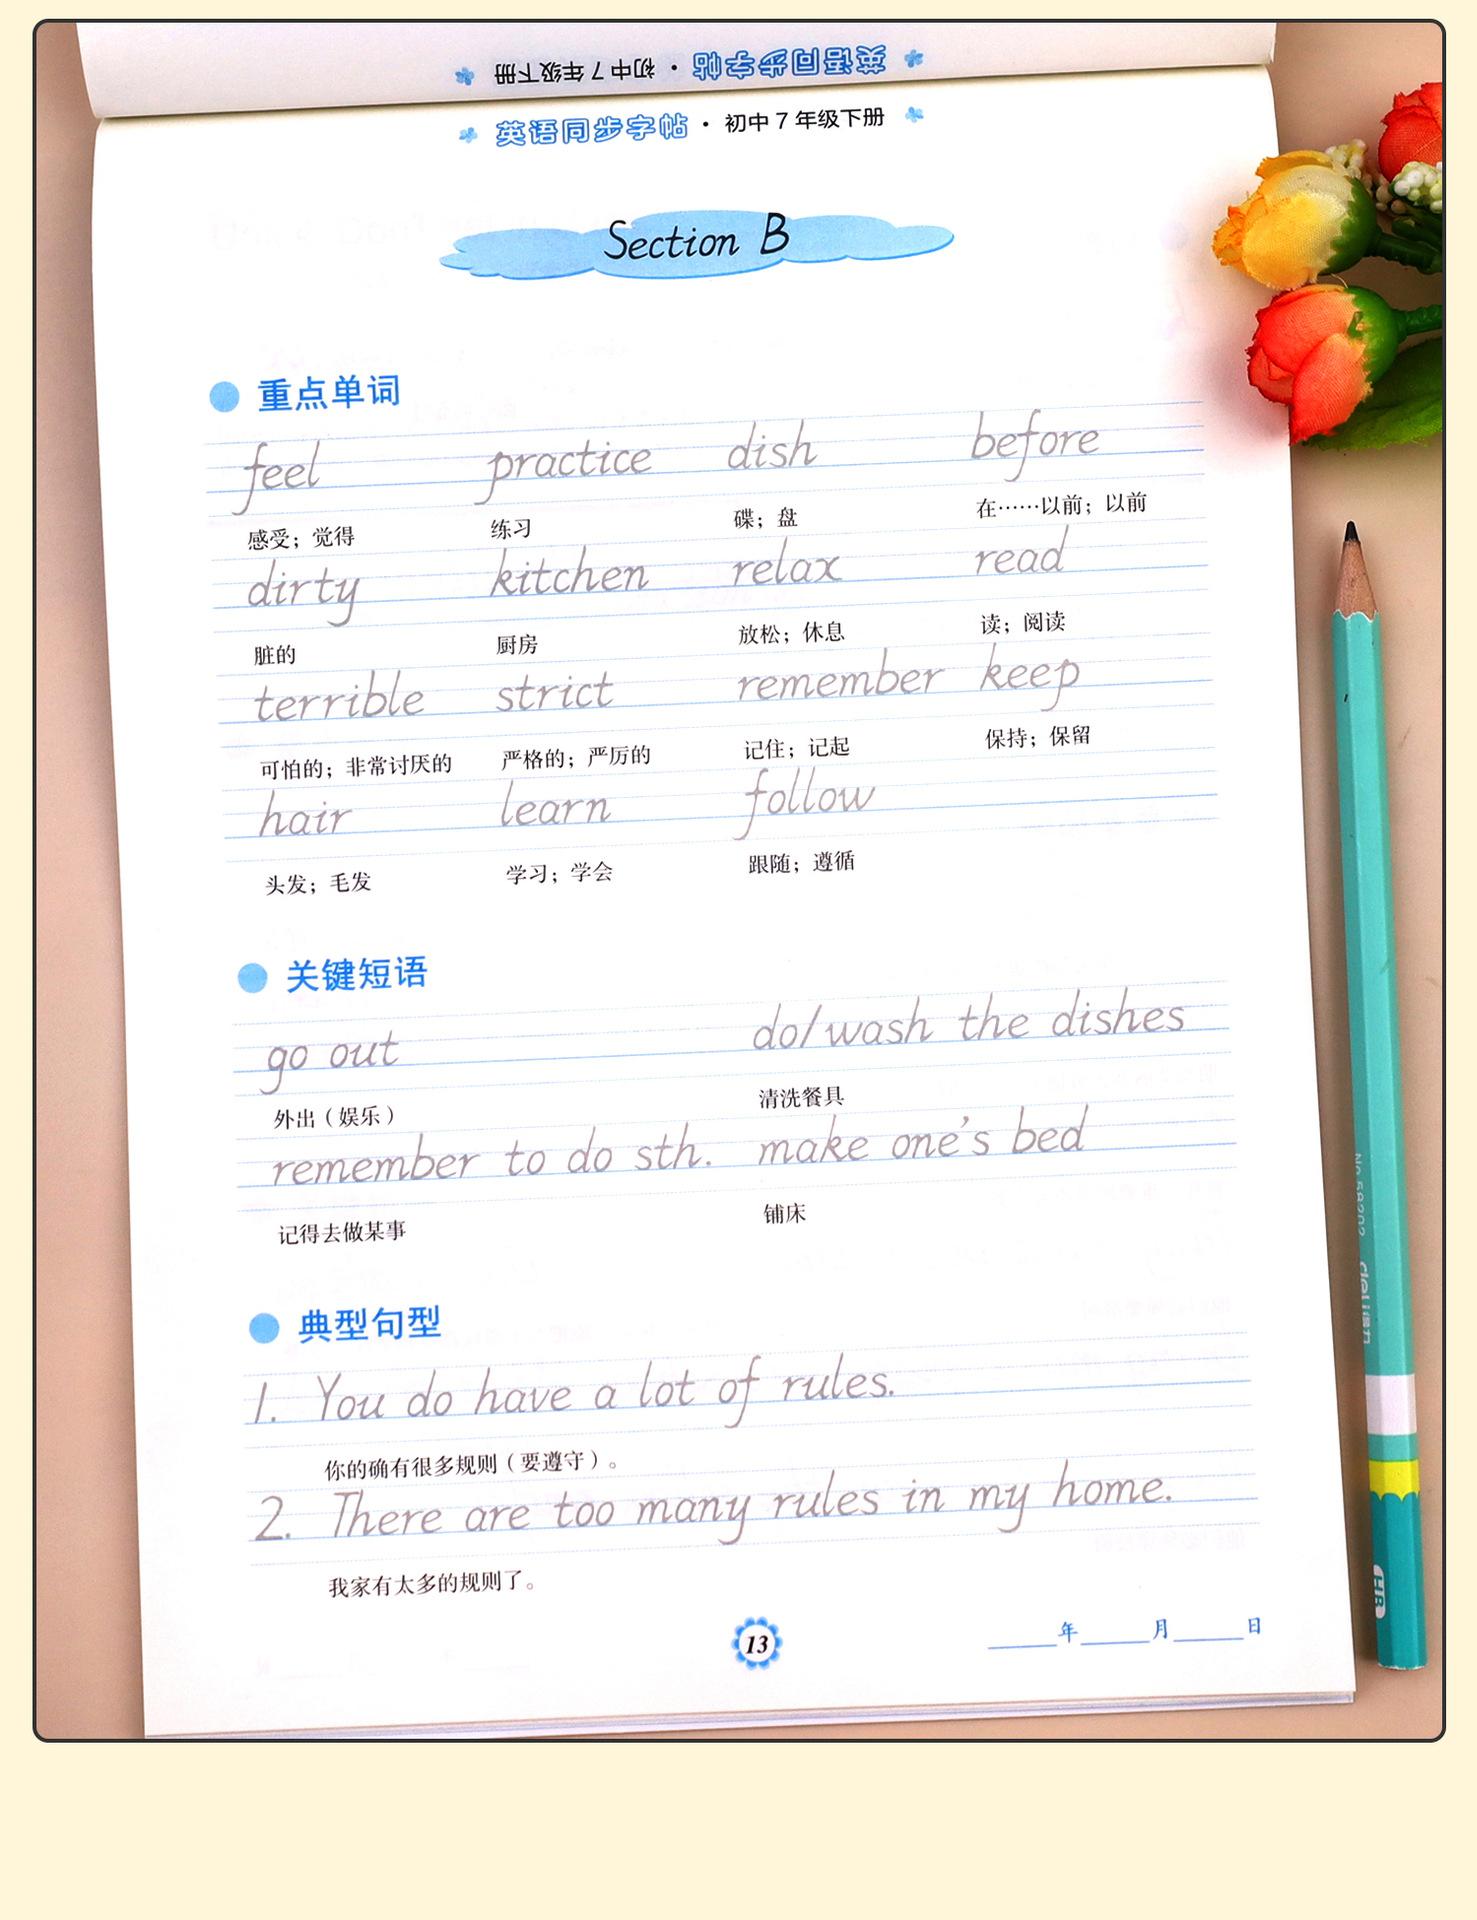 英语同步字帖·初中7年级下册
英语同步字帖·初中7年级下册
Section B
重点单词
feel practice dish before
感受；觉得 练习 碟；盘 在……以前；以前
dirty kitchen relax read
脏的 厨房 放松；休息 读；阅读
terrible strict remember keep
可怕的；非常讨厌的 严格的；严厉的 记住；记起 保持；保留
hair learn follow
头发；毛发 学习；学会 跟随；遵循
关键短语
go out do/wash the dishes
外出（娱乐） 清洗餐具
remember to do sth. make one's bed
记得去做某事 铺床
典型句型
1. You do have a lot of rules.
你的确有很多规则（要遵守）。
2. There are too many rules in my home.
我家有太多的规则了。
13
______年______月______日
deli 得力
HB